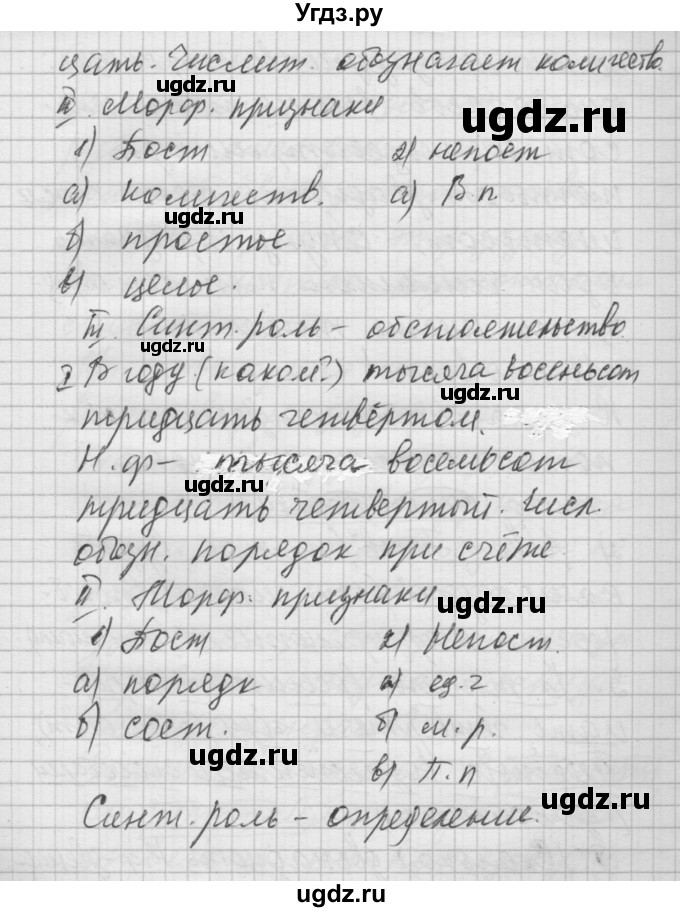 Угдз.ру
цать. Числит. обозначает количество.
II. Морф. признаки
1) Пост 2) непост
а) количеств. а) В.п.
б) простое.
в) целое.
III. Синт. роль – обстоятельство.
I В году (каком?) тысяча восемьсот
тридцать четвёртом.
Н.ф – тысяча восемьсот
тридцать четвертый. Числ.
обозн. порядок при счёте
II. Морф. признаки
1) Пост 2) Непост.
а) порядк а) ед.ч
б) сост. б) м.р.
в) П.п
Синт. роль – определение.
ugdz.ru
ugdz.ru
ugdz.ru
ugdz.ru
ugdz.ru
ugdz.ru
ugdz.ru
ugdz.ru
ugdz.ru
ugdz.ru
ugdz.ru
ugdz.ru